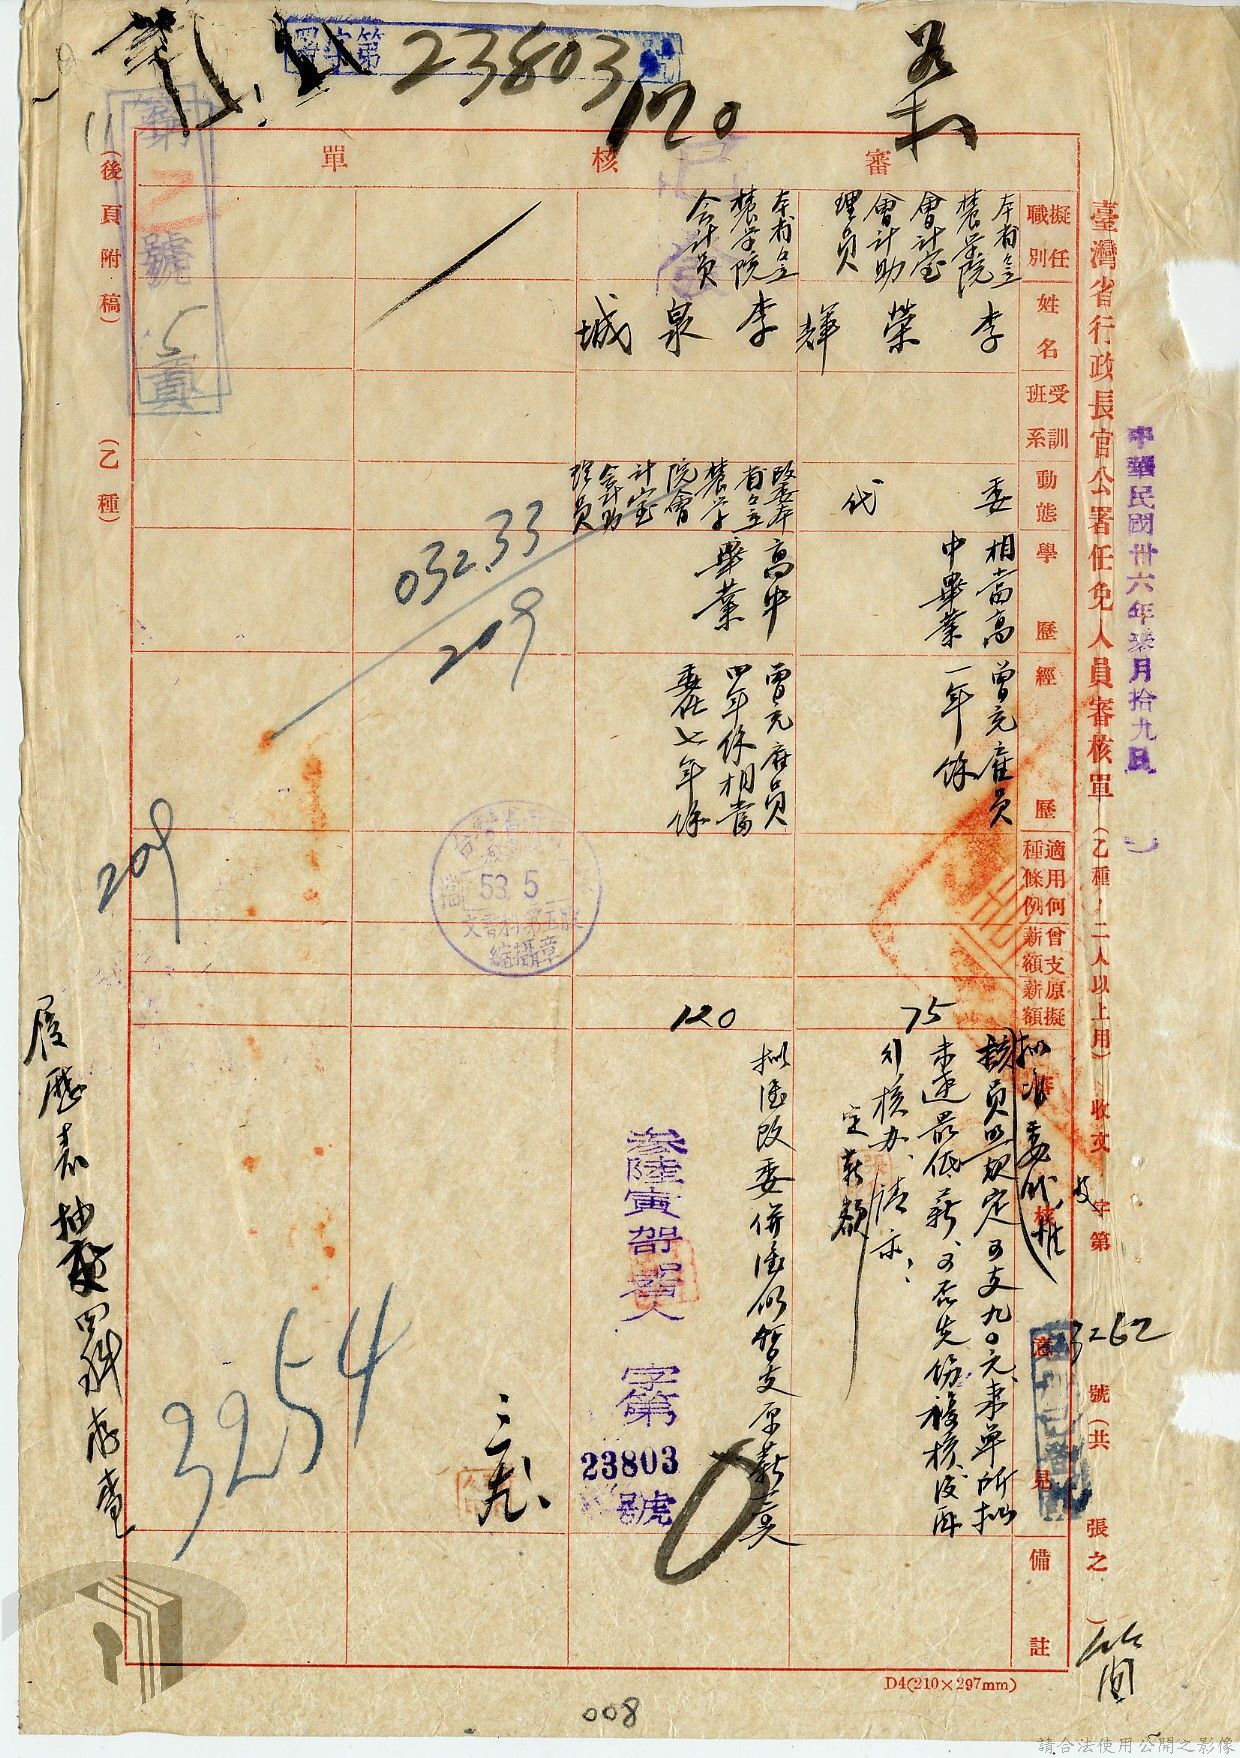 第 23803 號
120
臺灣省行政長官公署任免人員審核單(乙種,二人以上用)收文 字第 3262 號(共 張之 )
中華民國卅六年 月拾九日
審核單
擬任職別
姓名
受訓班系
動態
學歷
經歷
適用何種條例
曾支薪額
原擬薪額
審核意見
備註
本省立
農學院
會計室
會計助
理員
李榮輝
委
代
相當高
中畢業
曾充雇員
一年餘
75
擬准委代,惟
該員照規定可支九〇元,來單所擬
未達最低薪,可否先傷複核後再
引核办,請示:
定薪額
本省立
農學院
会計員
李泉城
改委本
省立
農學
院會
計室
会計助
理員
高中
畢業
曾充雇員
四年餘相當
委任七年餘
120
擬准改委併准仍暫支原薪
參陸寅 署人 字第
23803
號
已發
032.33
209
53.5
文書科第五股
縮攝章
209
3254
第 乙 號 5 頁
(後頁附稿)
(乙種)
履歷表抽 四科存查
D4(210×297mm)
008
請合法使用公開之影像